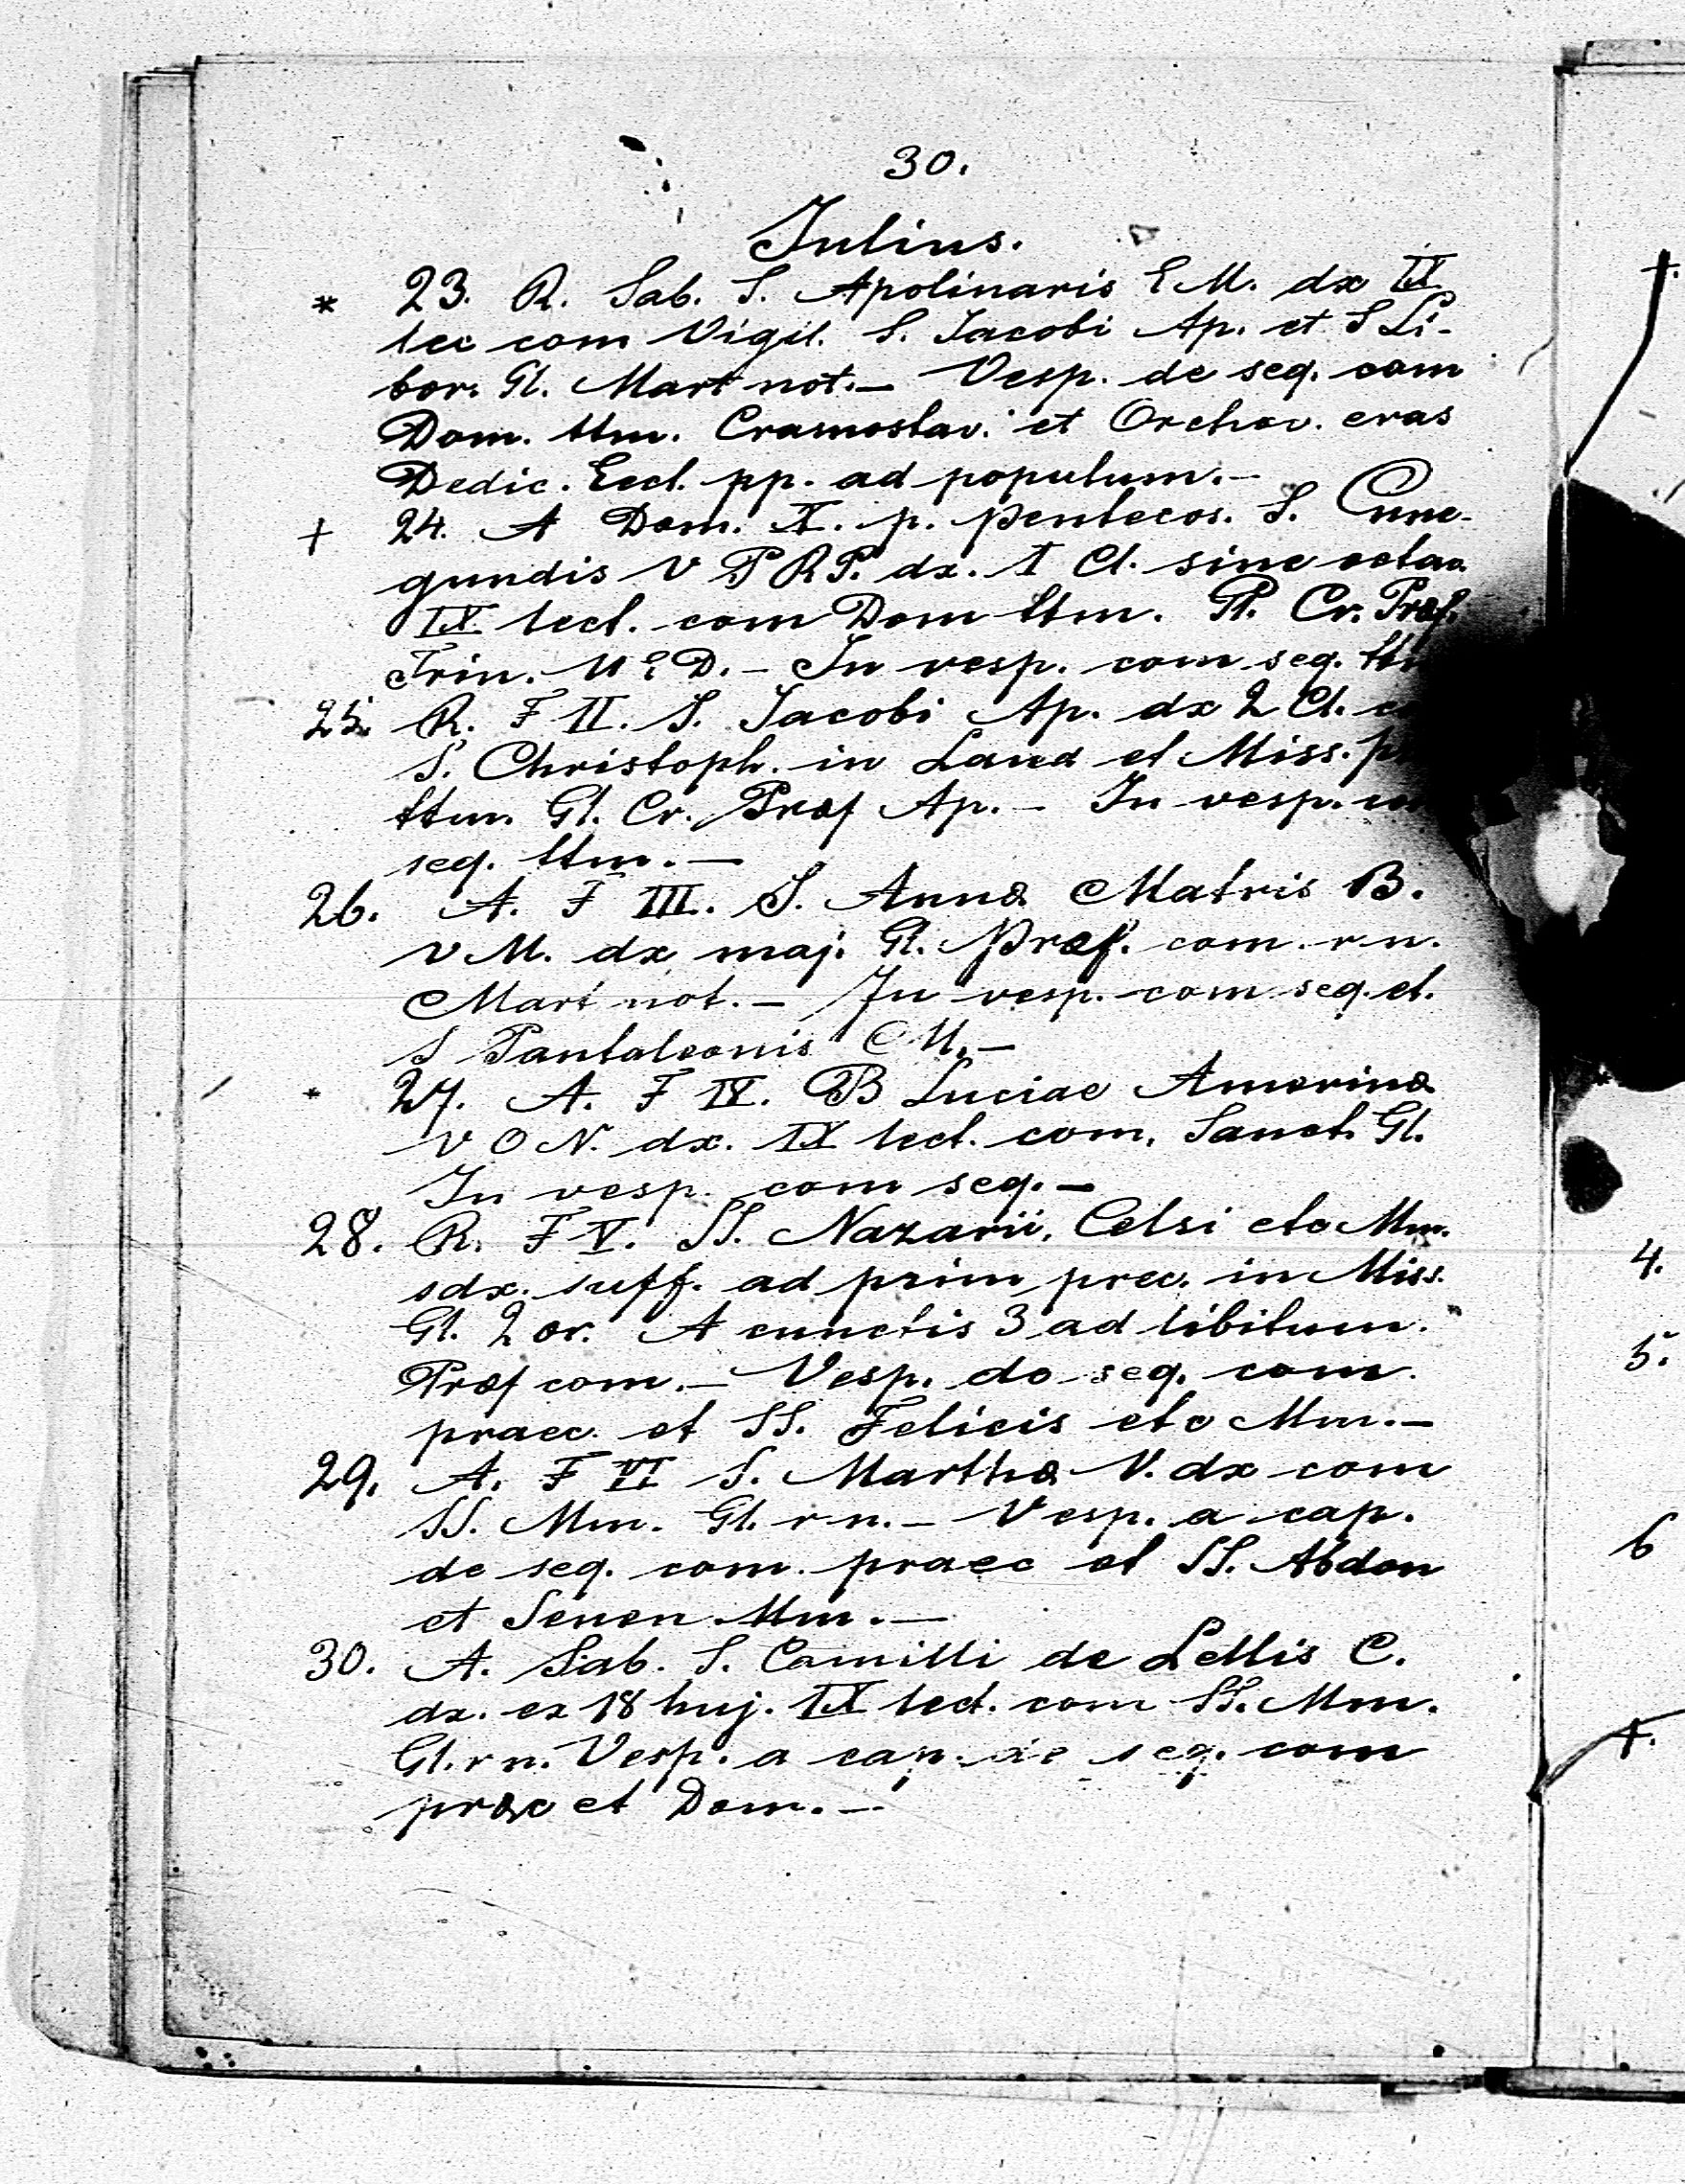 30.
Julius.
* 23. R. Sab. S. Apolinaris E M. dx IX
lec com Vigil. S. Jacobi Ap. et S Li-
bor. Gl. Mart not. — Vesp. de seq. com
Dom. ttm. Crasnostav. et Orchov. cras
Dedic. Eccl. pp. ad populum. —
+ 24. A Dom. X. p. Pentecos. S. Cune-
gundis V P R P. dx. I Cl. sine octav.
IX lect. com Dom ttm. Gl. Cr. Præf.
Trin. — In vesp. com seq. ttm
25. R. F II. S. Jacobi Ap. dx 2 Cl.
S. Christoph. in Laud et Miss.
ttm. Gl. Cr. Præf Ap. — In vesp.
seq. ttm. —
26. A. F III. S. Annæ Matris B.
V M. dx maj. Gl. Præf. com. r n.
Mart not. — In vesp. com seq. et.
S Pantaleonis M. —
* 27. A. F IV. B Luciae Amerinæ
V O N. dx. IX lect. com. Sanct. Gl.
In vesp. com seq. —
28. R. F V. SS. Nazarii, Celsi etc Mm.
sdx. suff. ad prim prec. in Miss.
Gl. 2 or. A cunctis 3 ad libitum.
Præf com. — Vesp. de seq. com.
praec. et SS. Felicis etc Mm. —
29. A. F VI S. Marthæ V. dx com
SS. Mm. Gl. r n. — Vesp. a cap.
de seq. com. praec et SS. Abdon
et Senen Mm. —
30. A. Sab. S. Camilli de Lellis C.
dx. ex 18 huj. IX lect. com SS. Mm.
Gl. r n. Vesp. a cap. de seq. com
præc et Dom. —
4.
5.
6